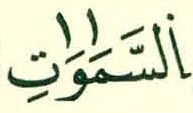 اَلسَّمَٰوَٰتِ